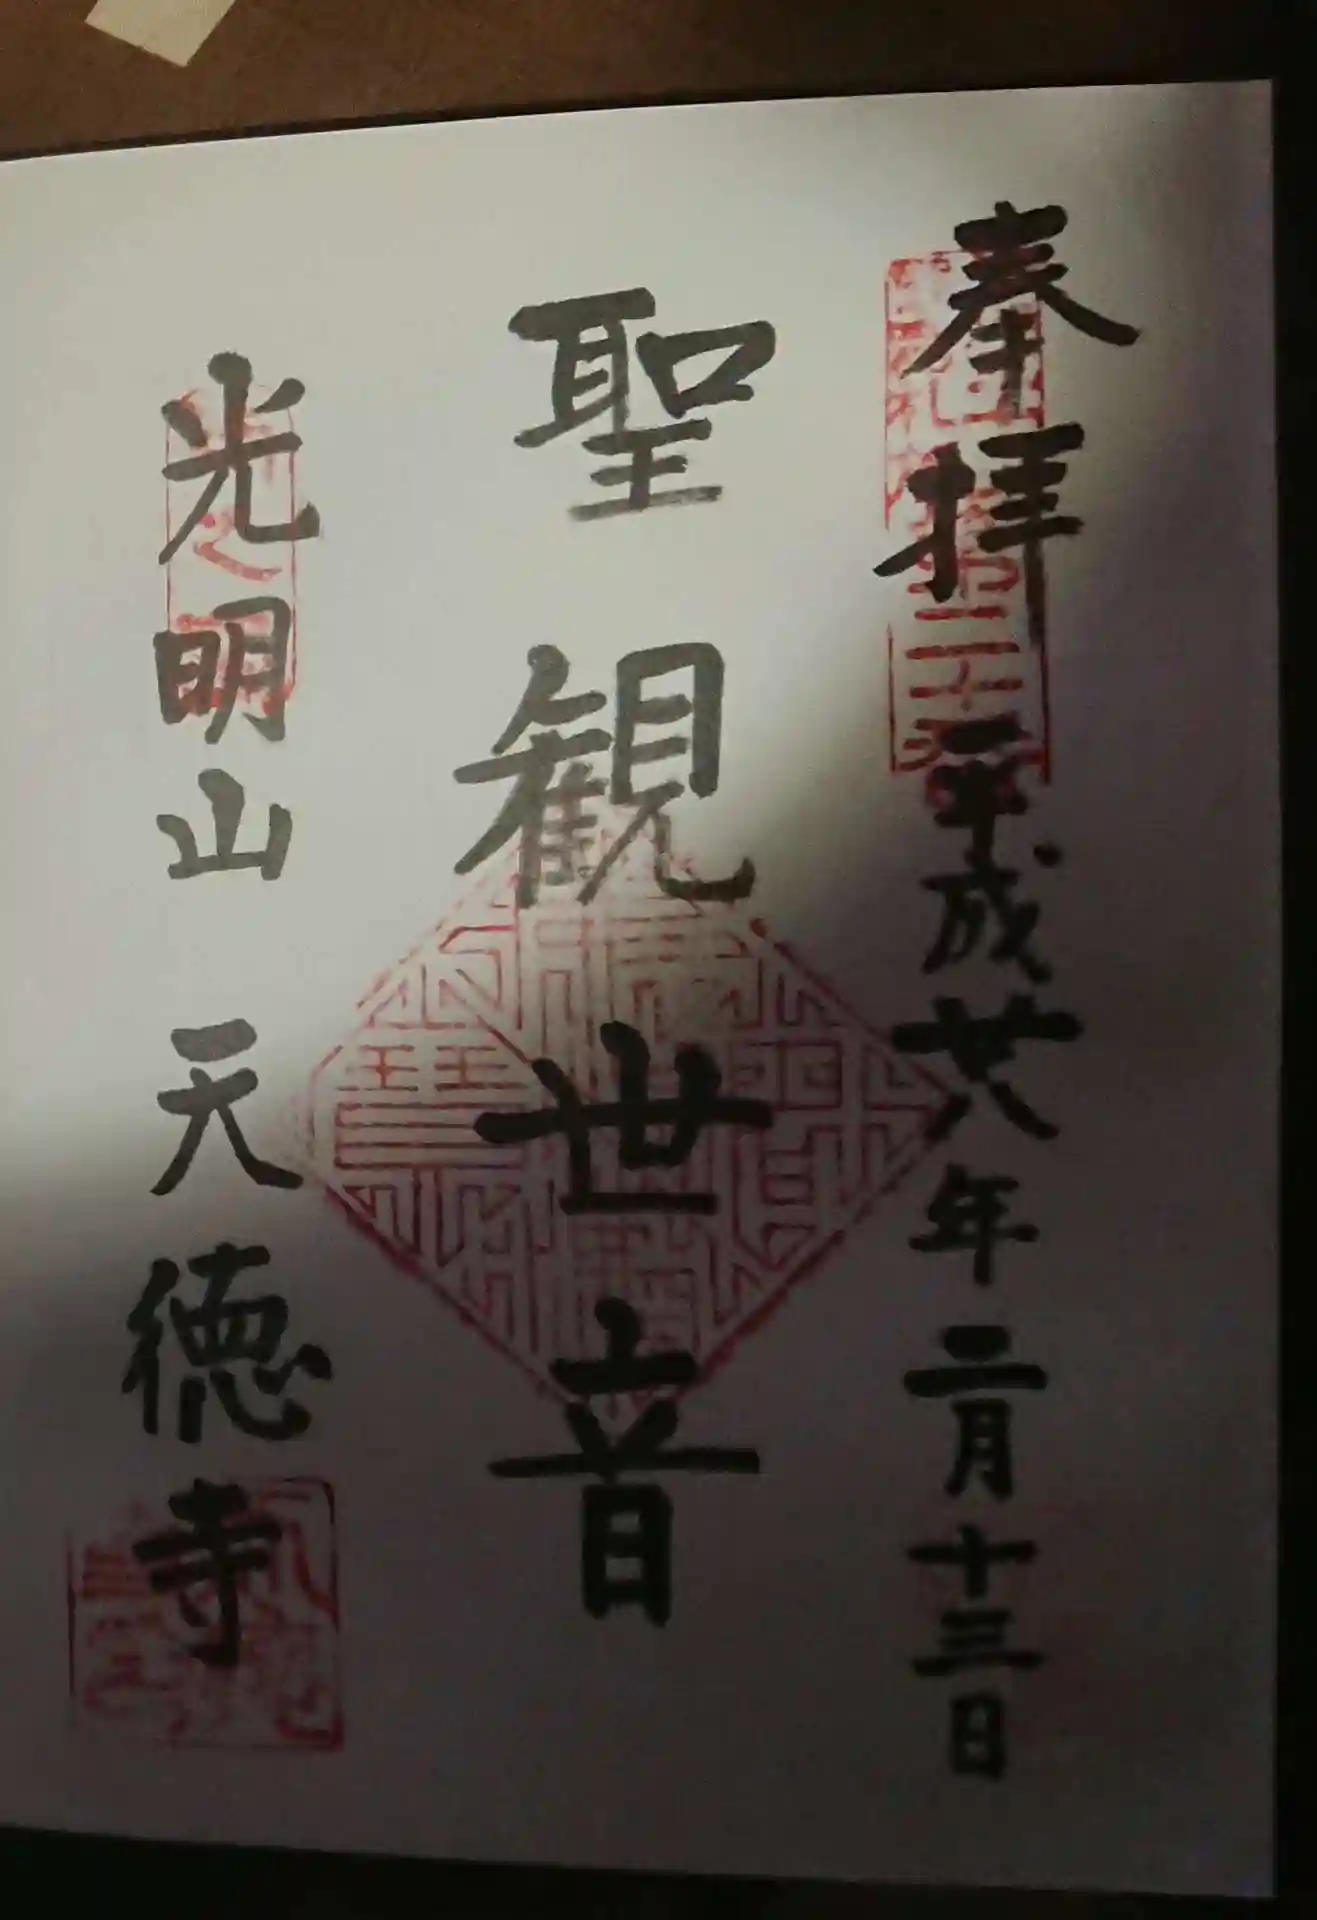 奉拝
平成廿八年二月十三日
聖観世音
光明山天徳寺